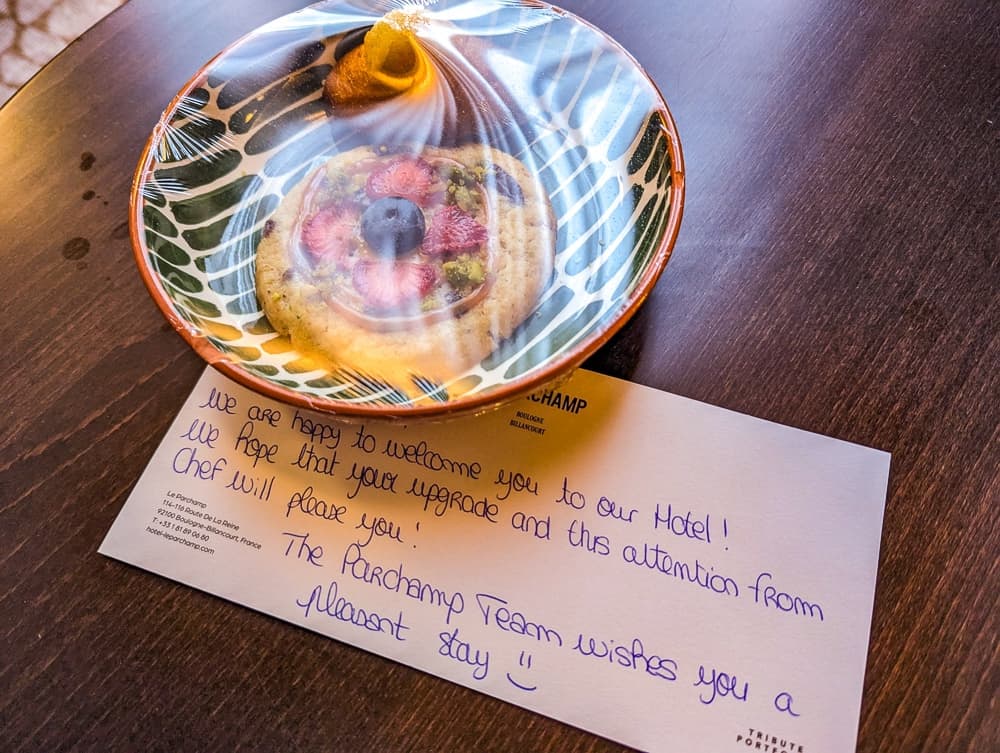 CHAMP
BOULOGNE
BILLANCOURT
We are happy to welcome you to our Hotel!
We hope that your upgrade and this attention from
Chef will please you!
The Parchamp Team wishes you a
pleasant stay
Le Parchamp
114-116 Route De La Reine
92100 Boulogne-Billancourt, France
T: +33 1 81 89 06 80
hotel-leparchamp.com
TRIBUTE